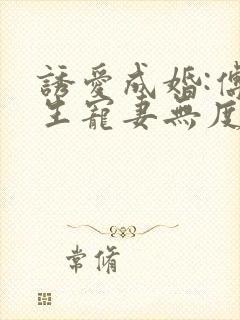 誘愛成婚:傅
生寵妻無度
常脩